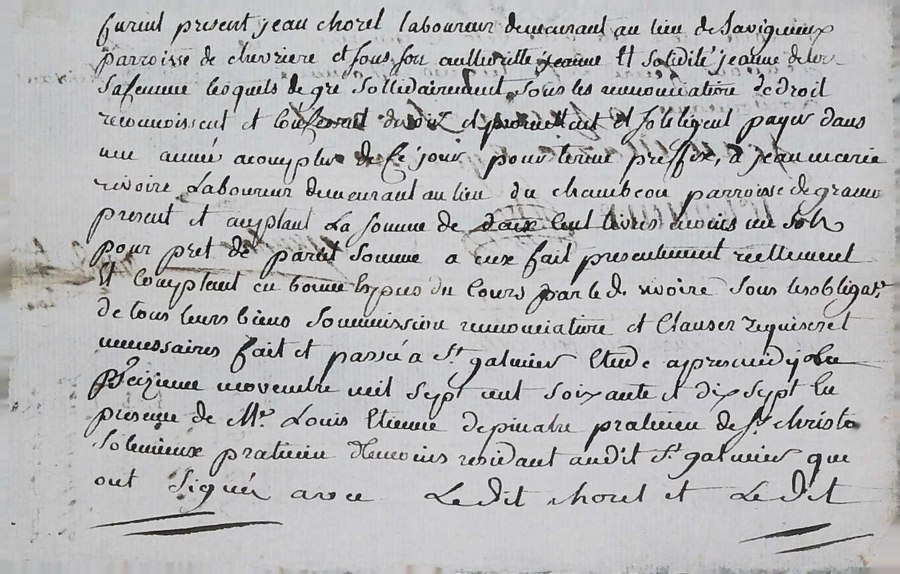 furent present jean chorel laboureur demeurant au lieu de Savigneux
parroisse de chevriere et sous son authorité jeanne Et solidité jeanne
sa femme lesquels de gré sollidairement sous les renonciations de droit
reconnoissent et confessent devoir et promettent et sobligent payer dans
une année acomplir de ce jour pour terme prefix, a jean marie
rivoire Laboureur demeurant au lieu du chambeou parroisse de
present et acceptant La somme de deux cent livres moins un sols
pour pret de pareil somme a eux fait presentement reellement
Et comptant en bonne Espece du Cours par le d. rivoire sous lesobligat.s
de tous leurs biens Soummission renonciature et Clauses requises et
necessaires fait et passé a St. galmier Etude apres midy
seizieme novembre mil sept cent soixante et dix sept En
presence de Mr. Louis Etienne depinatre praticien de St. christo
Solemieux praticien temoins residant audit St. galmier que
ont signés avec Le dit chorel et Le dit